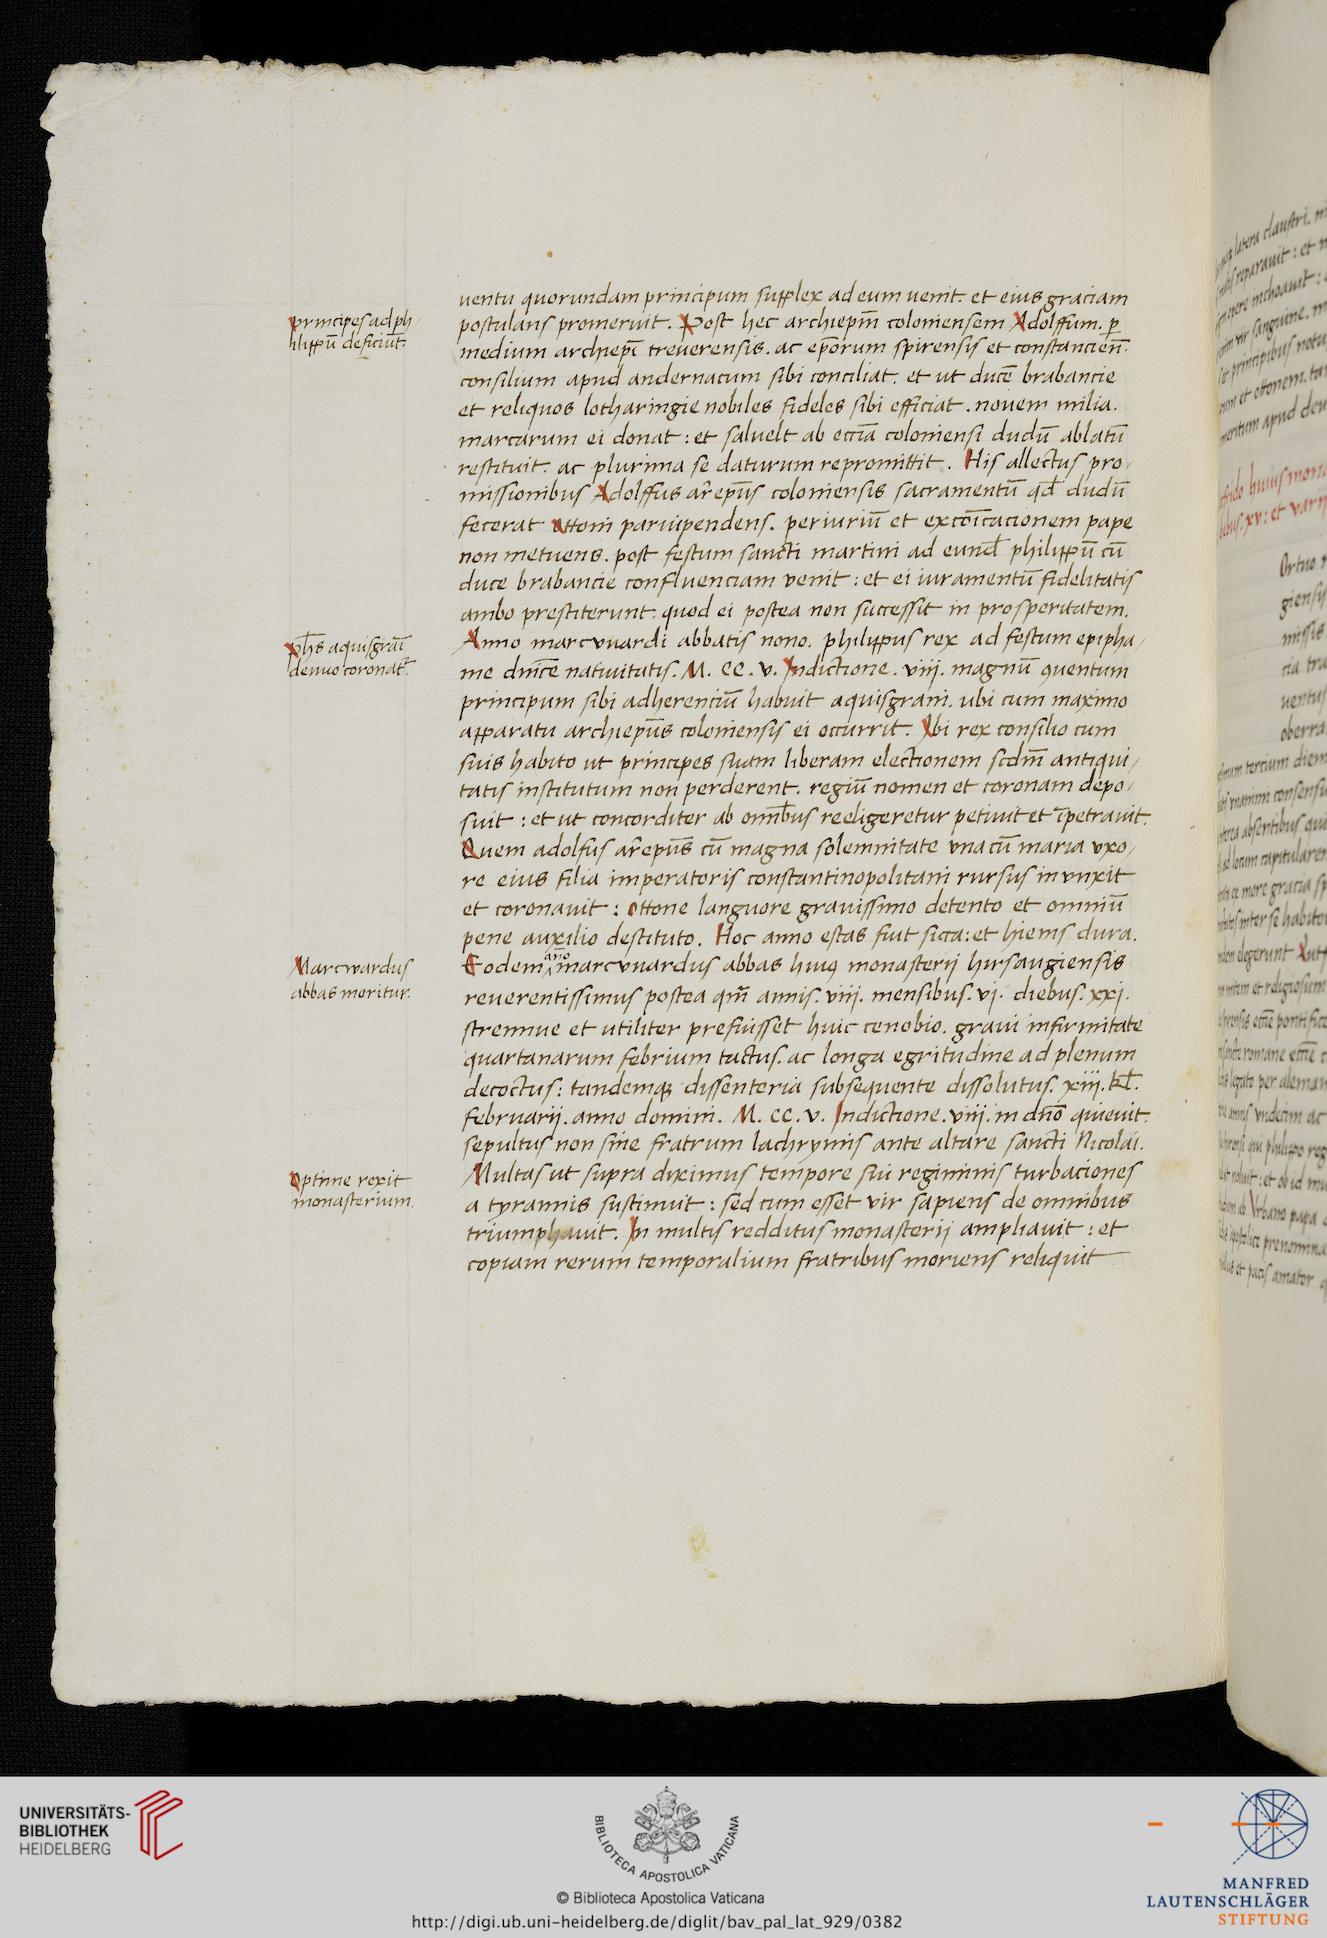 uentu quorundam principum supplex ad eum uenit. et eius graciam
principes ad ph/
postulans promeruit. Post hec archiepm̄ coloniensem Adolffum. p̲
hilippū deficiūt.
medium archiepī treuerensis. ac ep̄orum spirensis et constancien̄.
consilium apud andernacum sibi conciliat. et ut ducē brabancie
et reliquos lotharingie nobiles fideles sibi efficiat. nouem milia.
marcarum ei donat : et saluelt ab eccīa coloniensi dudū ablatū
restituit. ac plurima se daturum repromittit. His allectus pro/
missionibus Adolffus ar̄epūs coloniensis sacramentū qd̄ dudū
fecerat ottoni paruipendens. periuriū et excōicacionem pape
non metuens. post festum sancti martini ad eund̄ philippū cū
duce brabancie confluenciam venit : et ei iuramentū fidelitatis
ambo prestiterunt. quod ei postea non successit in prosperitatem.
phūs aquisgrāi
Anno marcvuardi abbatis nono. philippus rex ad festum epipha/
denuo coronat̄.
nie dnīce natiuitatis. M. CC. V. Indictione. viij. magnū ꝯuentum
principum sibi adherenciū habuit aquisgrani. vbi cum maximo
apparatu archiepūs coloniensis ei occurrit. Ibi rex consilio cum
suis habito ut principes suam liberam electionem scdm̄ antiqui/
tatis institutum non perderent. regiū nomen et coronam depo/
suit : et ut concorditer ab omībus reeligeretur petiuit et īpetrauit.
Quem adolfus ar̄epūs cū magna solemnitate vna cū maria vxo/
re eius filia imperatoris constantinopolitani rursus in vnxit
et coronauit : ottone languore grauissimo detento et omniū
pene auxilio destituto. Hoc anno estas fuit sicca : et hiems dura.
Marcwardus
Eodem āno marcvuardus abbas huiꝰ monasterij hirsaugiensis
abbas moritur.
reuerentissimus postea qm̄ annis. viij. mensibus. vj. diebus. xxj.
strennue et utiliter prefuisset huic cenobio. graui infirmitate
quartanarum febrium tactus. ac longa egritudine ad plenum
decoctus : tandemqꝫ dissenteria subsequente dissolutus. xiij. kl̄.
februarij. anno domini. M. CC. V. Indictione. viij. in dnō quieuit.
sepultus non sine fratrum lachrymis ante altare sancti Nicolai.
Optime rexit
Multas ut supra diximus tempore sui regiminis turbaciones
monasterium.
a tyrannis sustinuit : sed cum esset vir sapiens de omnibus
triumphauit. In multis redditus monasterij ampliauit : et
copiam rerum temporalium fratribus moriens reliquit
UNIVERSITÄTS-
BIBLIOTHEK
HEIDELBERG
BIBLIOTECA APOSTOLICA VATICANA
© Biblioteca Apostolica Vaticana
http://digi.ub.uni-heidelberg.de/diglit/bav_pal_lat_929/0382
MANFRED
LAUTENSCHLÄGER
STIFTUNG